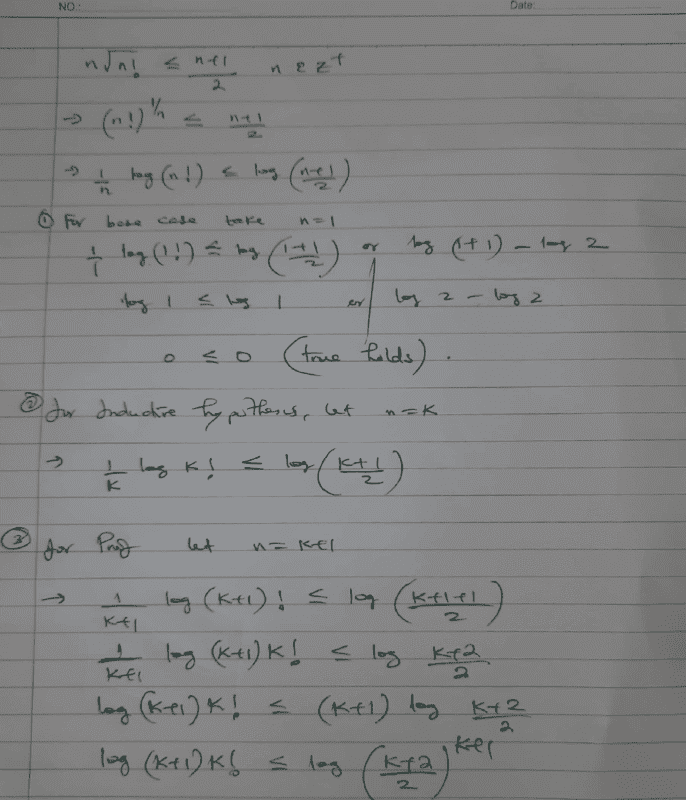 NO.: Date:
n√n! ≤ n+1/2 n ε z+
→ (n!)^1/n ≤ n+1/2
→ 1/n log (n!) ≤ log (n+1/2)
① For base case take n=1
1/1 log (1!) ≤ log (1+1/2) or log (1+1) - log 2
log 1 ≤ log 1 or log 2 - log 2
0 ≤ 0 (true holds).
② for Inductive hypothesis, let n=K
→ 1/K log K! ≤ log (K+1/2)
③ for Proof let n=K+1
→ 1/K+1 log (K+1)! ≤ log (K+1+1/2)
1/K+1 log (K+1) K! ≤ log K+2/2
log (K+1) K! ≤ (K+1) log K+2/2
log (K+1) K! ≤ log (K+2/2)^K+1